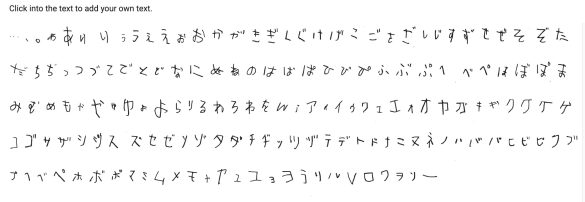 Click into the text to add your own text.
… 、 。 ぁ あ ぃ い ぅ う ぇ え ぉ お か が き ぎ く ぐ け げ こ ご さ ざ し じ す ず せ ぜ そ ぞ た
だ ち ぢ っ つ づ て で と ど な に ぬ ね の は ば ぱ ひ び ぴ ふ ぶ ぷ へ べ ぺ ほ ぼ ぽ ま
み む め も ゃ や ゅ ゆ ょ よ ら り る れ ろ わ を ん ァ ア ィ イ ゥ ウ ェ エ ォ オ カ ガ キ ギ ク グ ケ ゲ
コ ゴ サ ザ シ ジ ス ズ セ ゼ ソ ゾ タ ダ チ ヂ ッ ツ ヅ テ デ ト ド ナ ニ ヌ ネ ノ ハ バ パ ヒ ビ ピ フ ブ
プ ヘ ベ ペ ホ ボ ポ マ ミ ム メ モ ャ ヤ ュ ユ ョ ヨ ラ リ ル レ ロ ワ ヲ ン ー